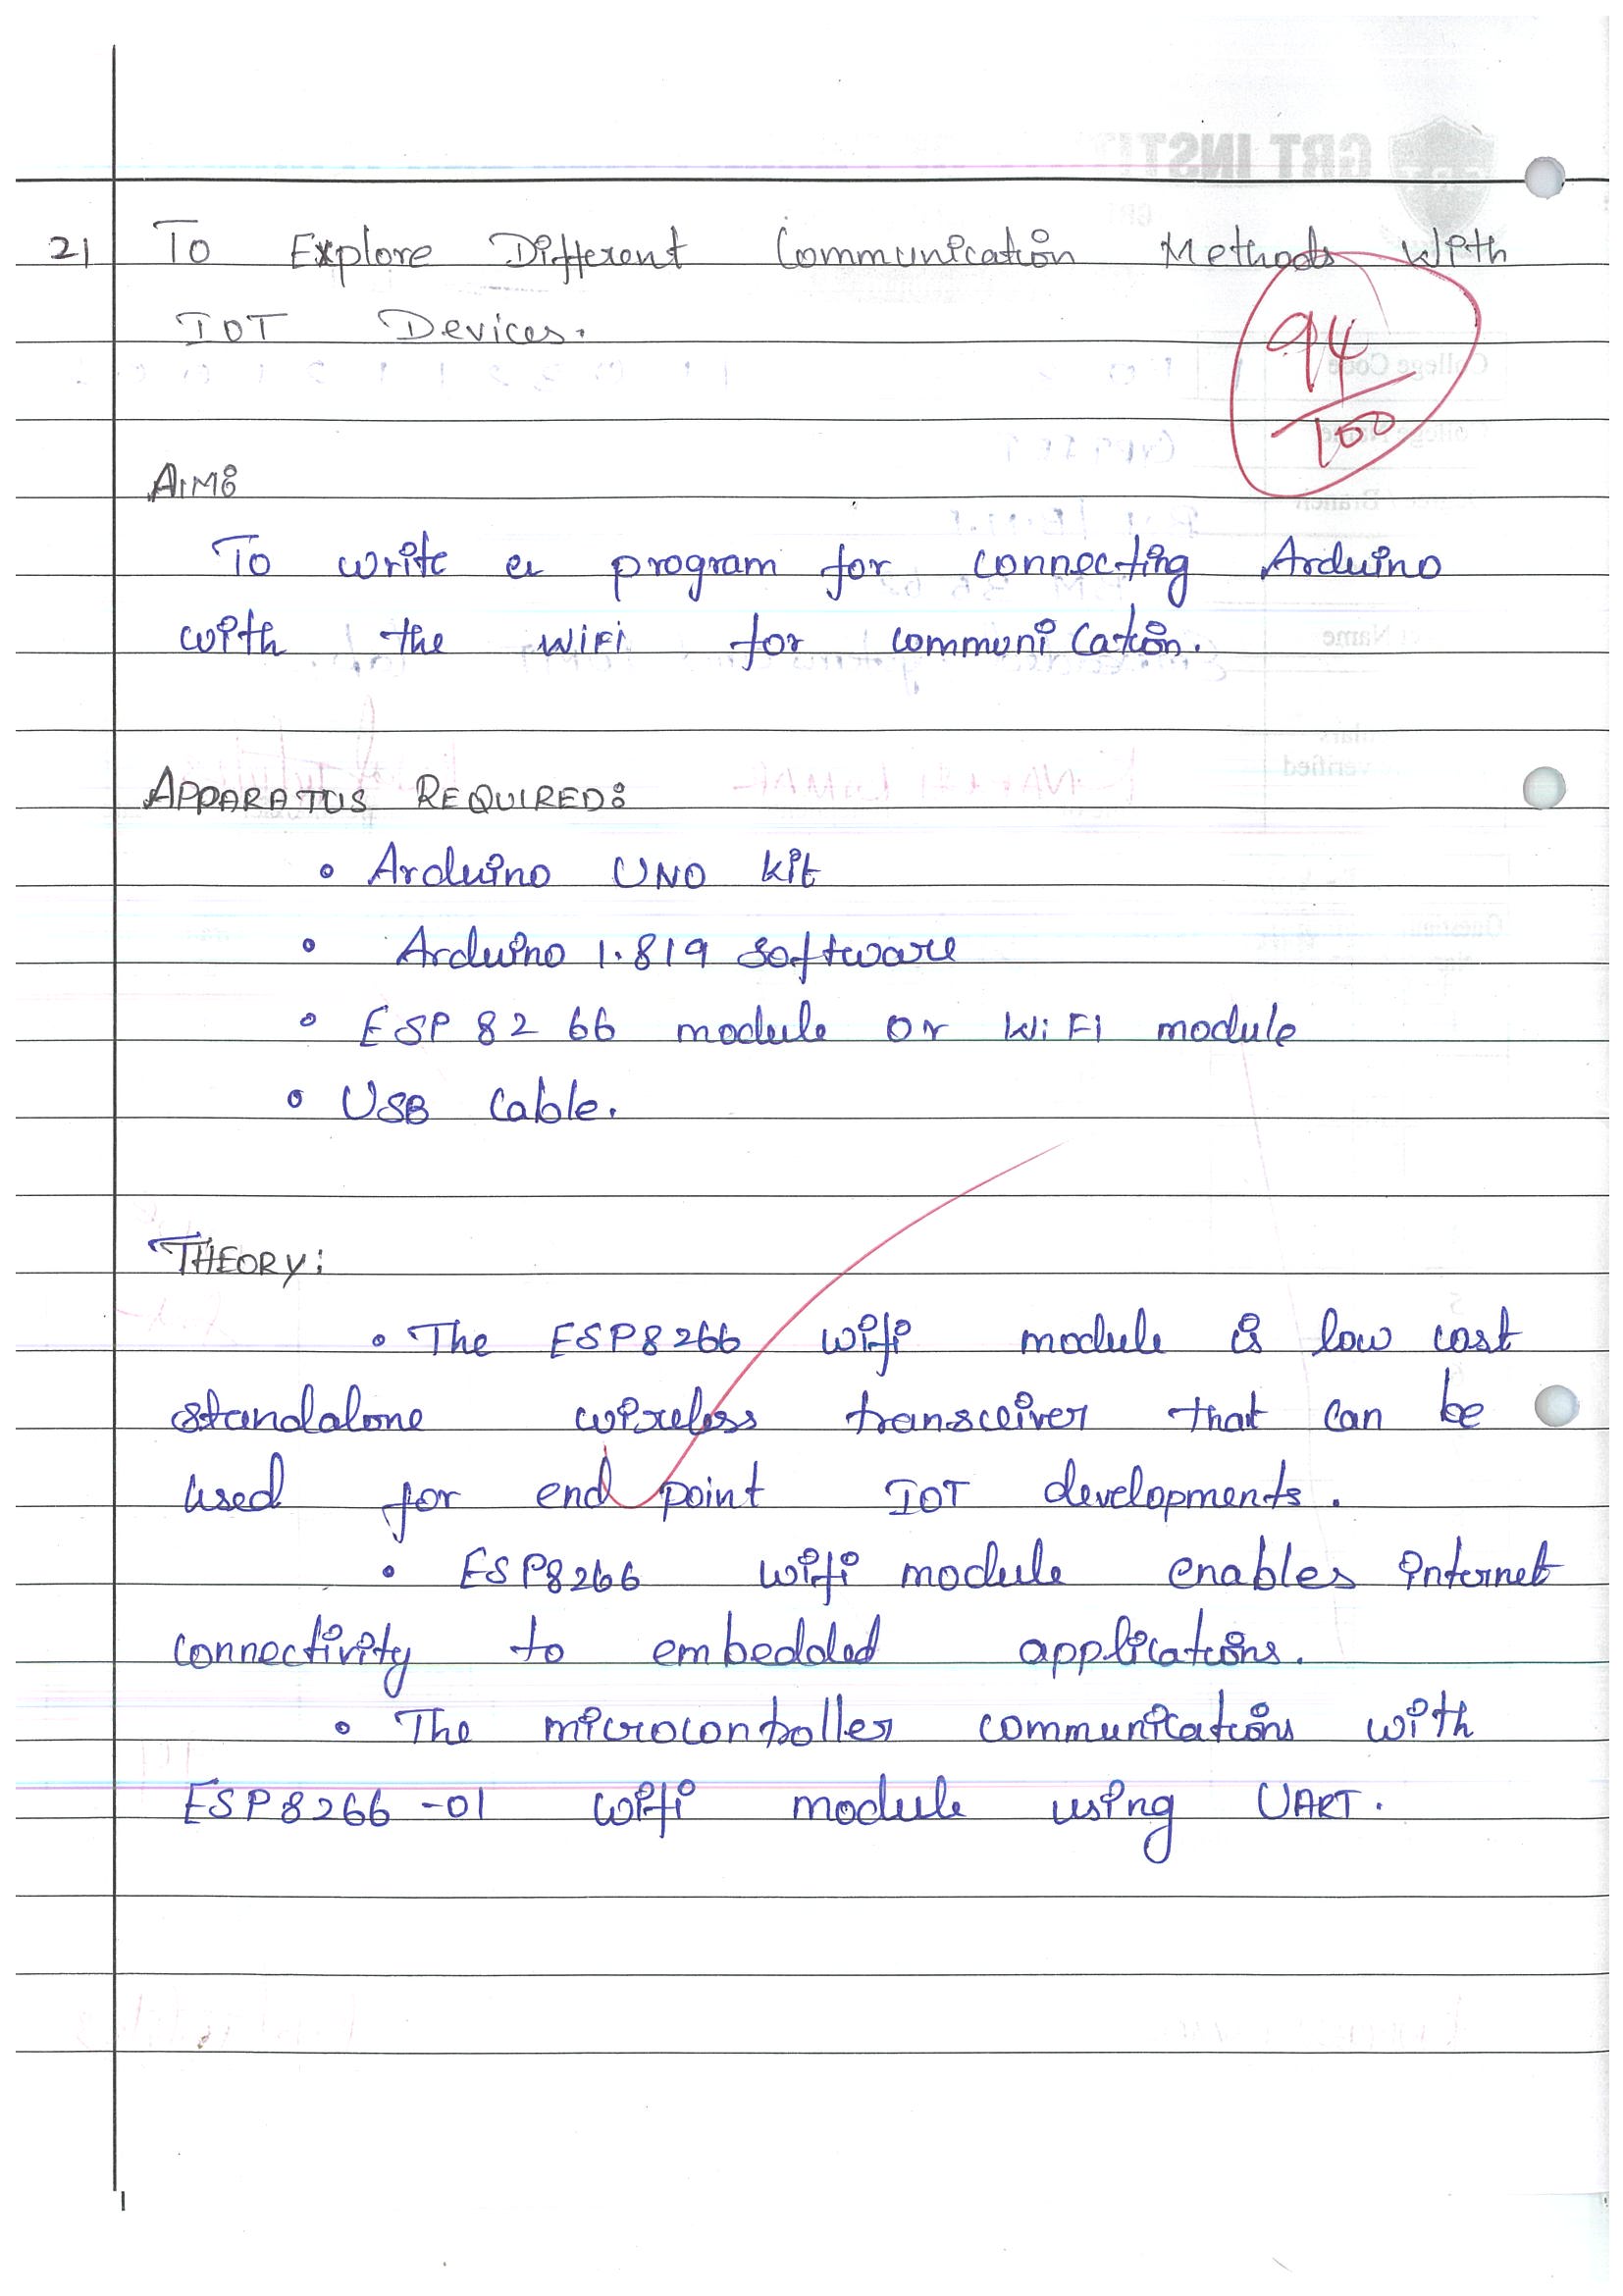 21 To Explore Different Communication Methods With
IOT Devices.
94
100
AIM:
To write a program for connecting Arduino
with the WiFi for communication.
APPARATUS REQUIRED:
• Arduino UNO kit
• Arduino 1.819 software
• ESP 82 66 module or WiFi module
• USB Cable.
THEORY:
• The ESP8266 wifi module is low cost
standalone wireless transceiver that can be
used for end point IOT developments.
• ESP8266 wifi module enables internet
connectivity to embedded applications.
• The microcontroller communications with
ESP8266-01 wifi module using UART.
1